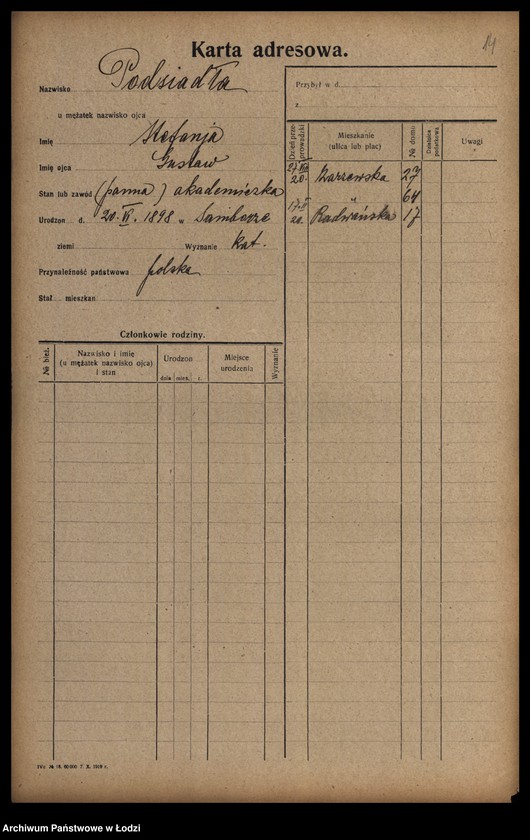 14
Karta adresowa.
Nazwisko Podsiadła
u mężatek nazwisko ojca
Imię Stefanja
Imię ojca Gustaw
Stan lub zawód (panna) akademiczka
Urodzon d. 20. VI. 1898 w Samborze
ziemi Wyznanie kat.
Przynależność państwowa polska
Stał mieszkan
Członkowie rodziny.
№ bież. Nazwisko i imię (u mężatek nazwisko ojca) i stan Urodzon data mies. r. Miejsce urodzenia Wyznanie
Przybył w d.
z
Dzień przeprowadzki Mieszkanie (ulica lub plac) № domu Dzielnica podatkowa Uwagi
20. 27
" 64
20. Radwańska 17
7. X. 1919 r.
Archiwum Państwowe w Łodzi